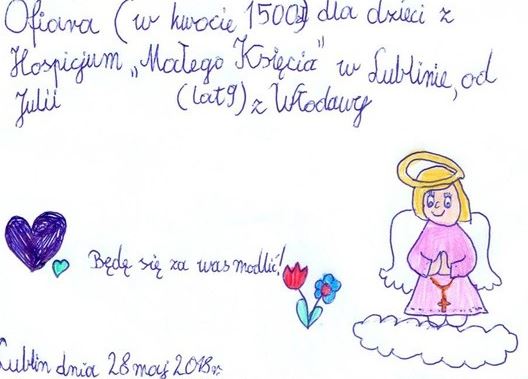 Ofiara (w kwocie 1500zł) dla dzieci z
Hospicjum „Małego Księcia" w Lublinie, od
Julii (lat 9) z Włodawy
Będę się za was modlić!
Lublin dnia 28 maj 2018r.